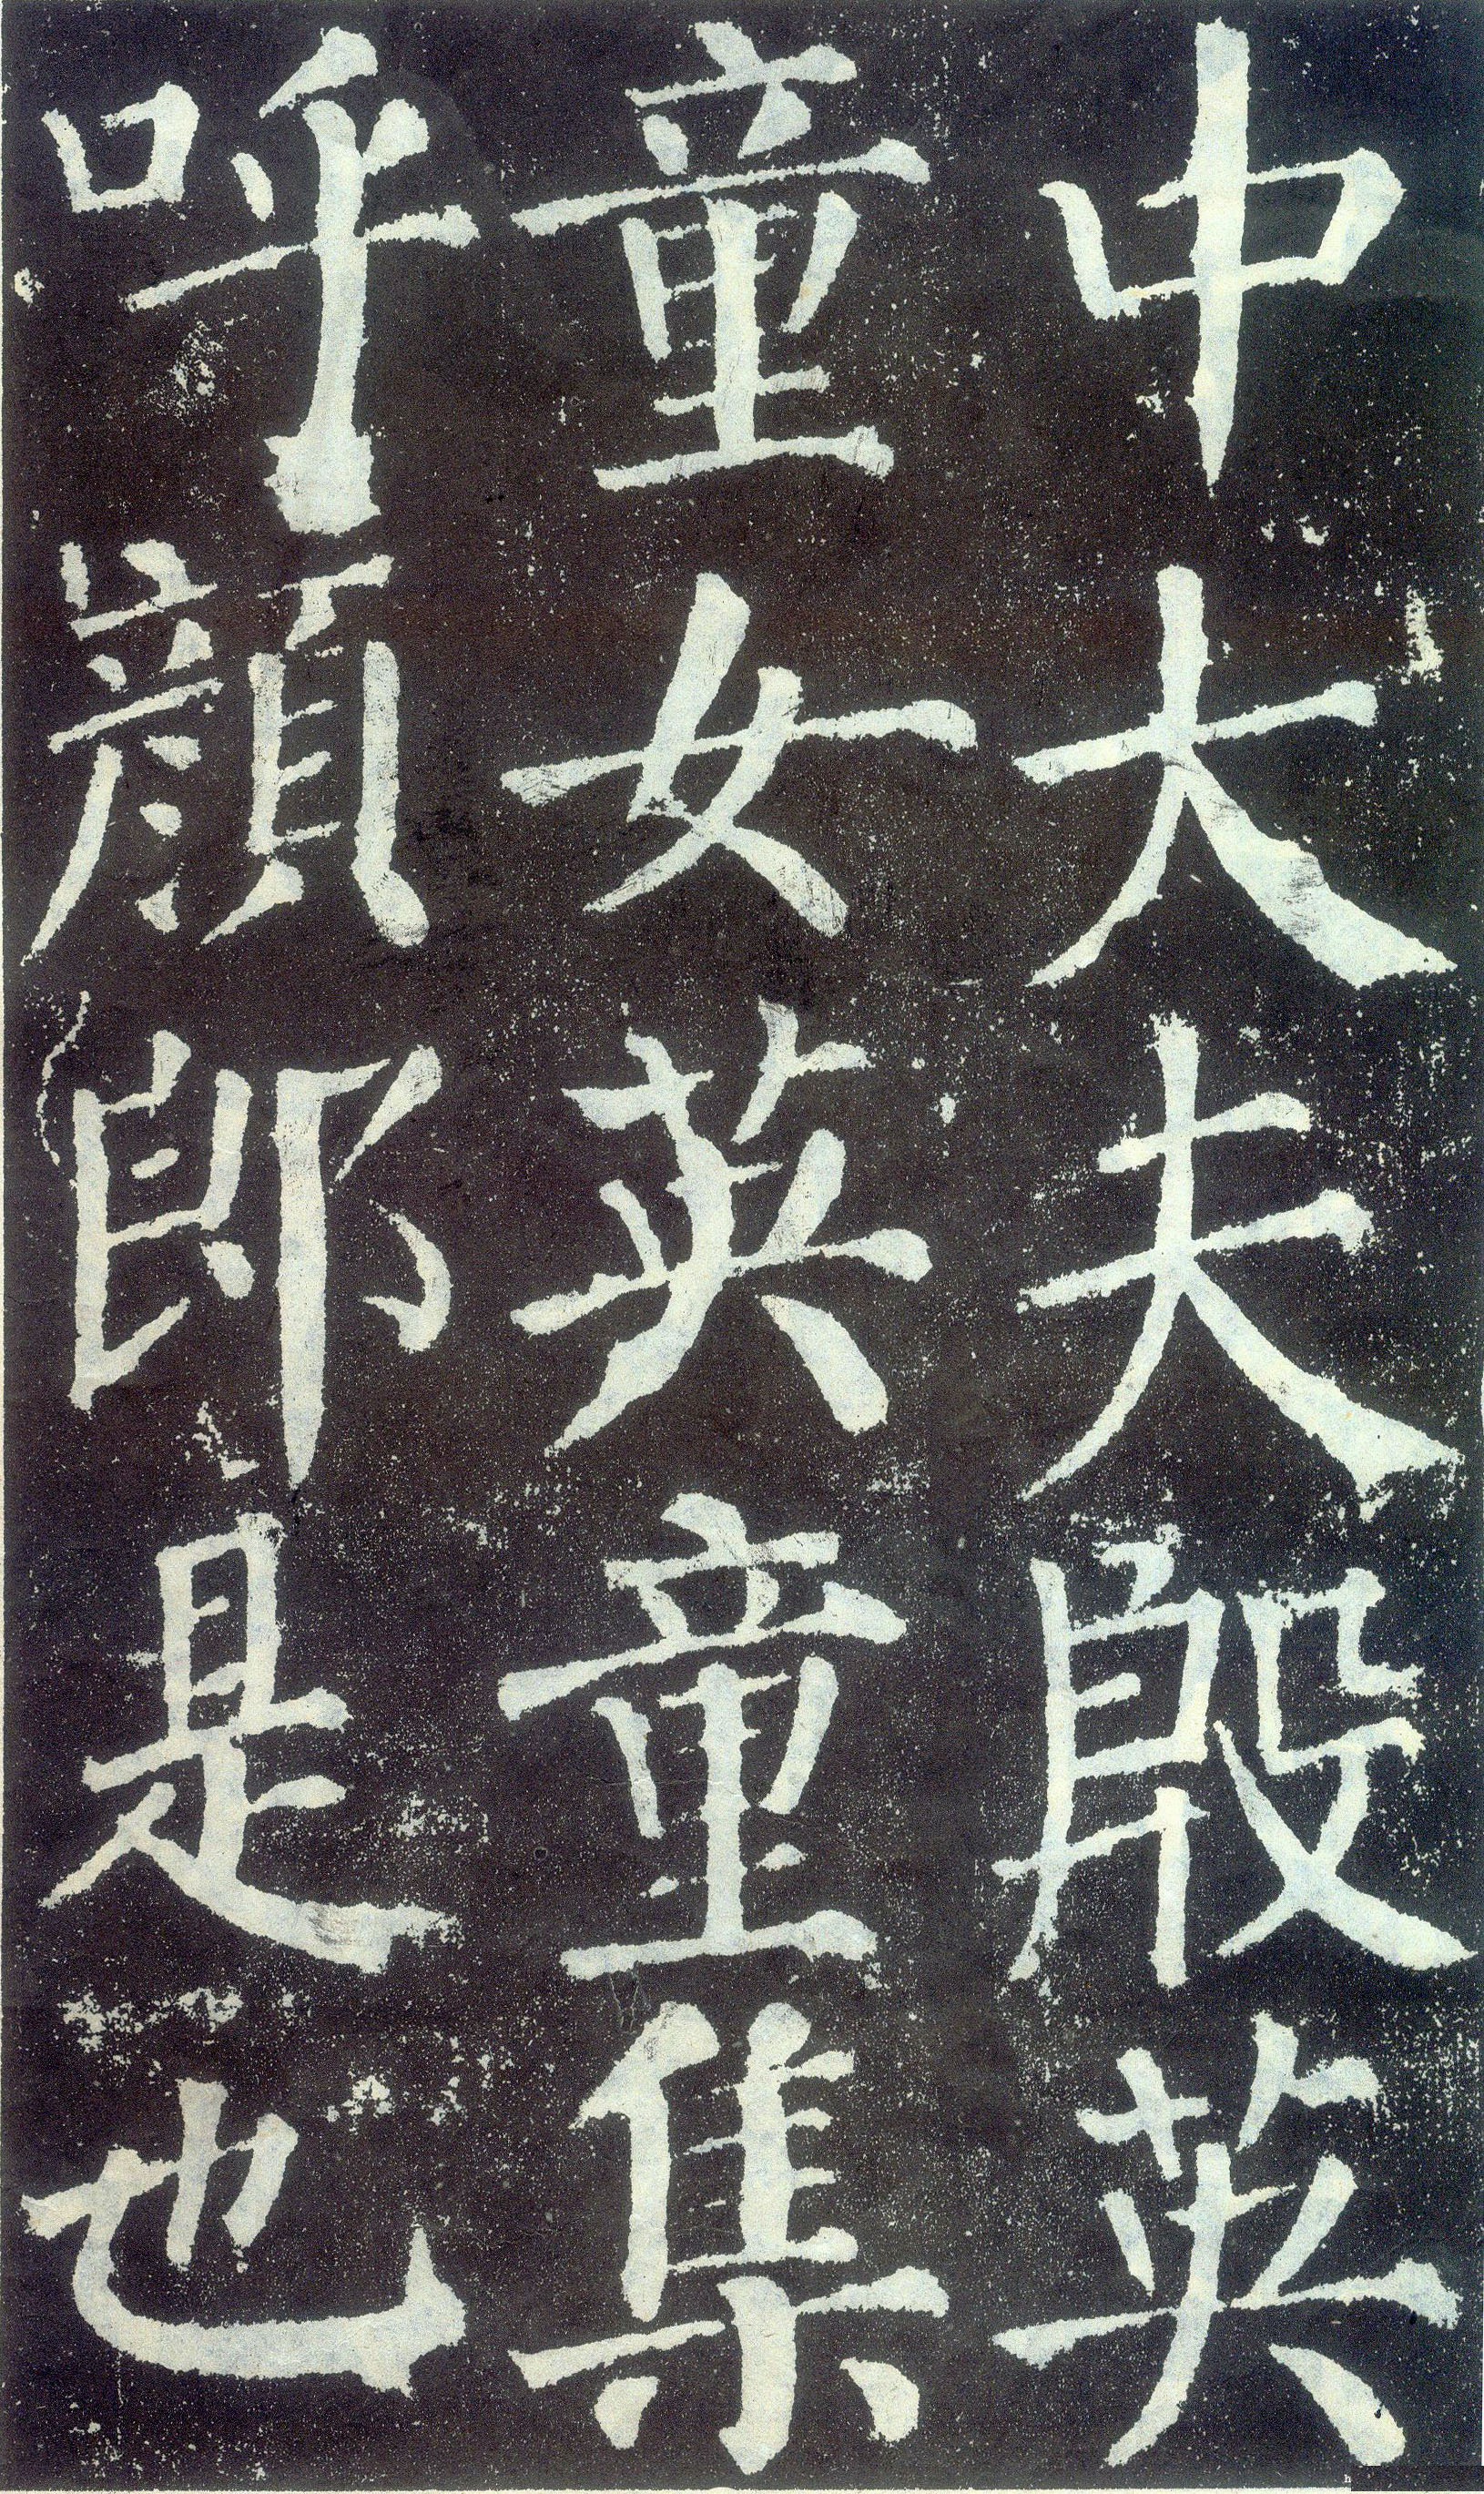 中大夫殷英
童女英童集
呼顏郎是也